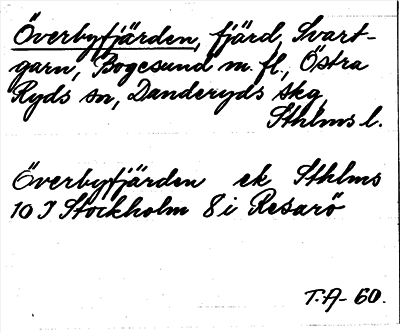 Överbyfjärden, fjärd, Svart-
garn, Bogesund m. fl., Östra
Ryds sn, Danderyds skg,
Sthlms l.
Överbyfjärden ek Sthlms
10 I Stockholm 8 i Resarö
T.A- 60.